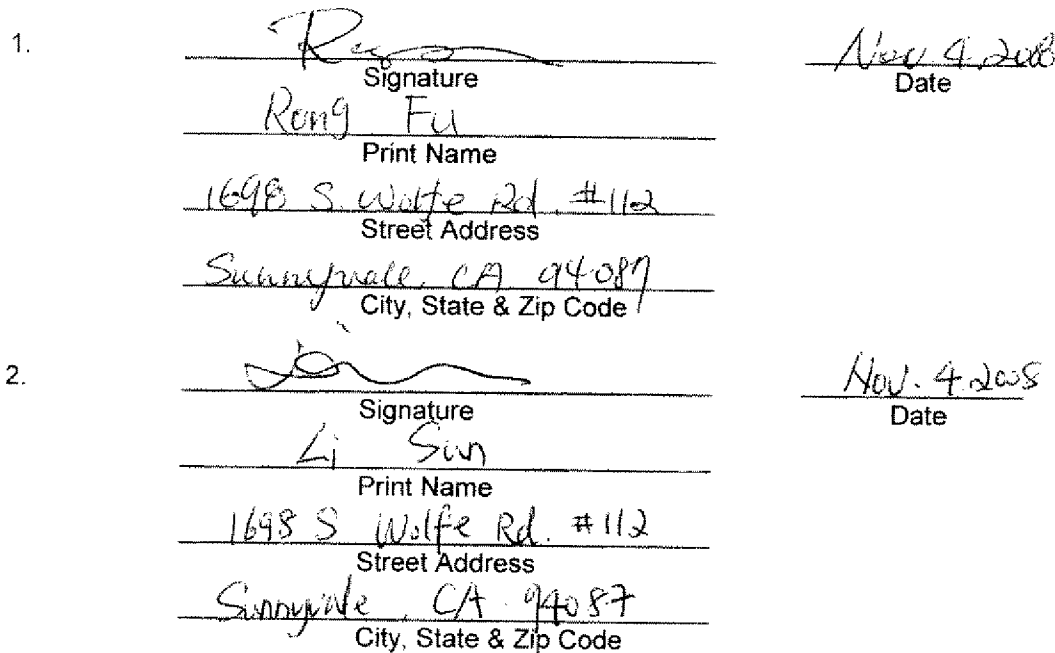 1.
Nov. 4. 2008
Signature
Date
Rong Fu
Print Name
1698 S. Wolfe Rd. #112
Street Address
Sunnyvale, CA 94087
City, State & Zip Code
2.
Nov. 4. 2008
Signature
Date
Li Sun
Print Name
1698 S Wolfe Rd. #112
Street Address
Sunnyvale, CA 94087
City, State & Zip Code